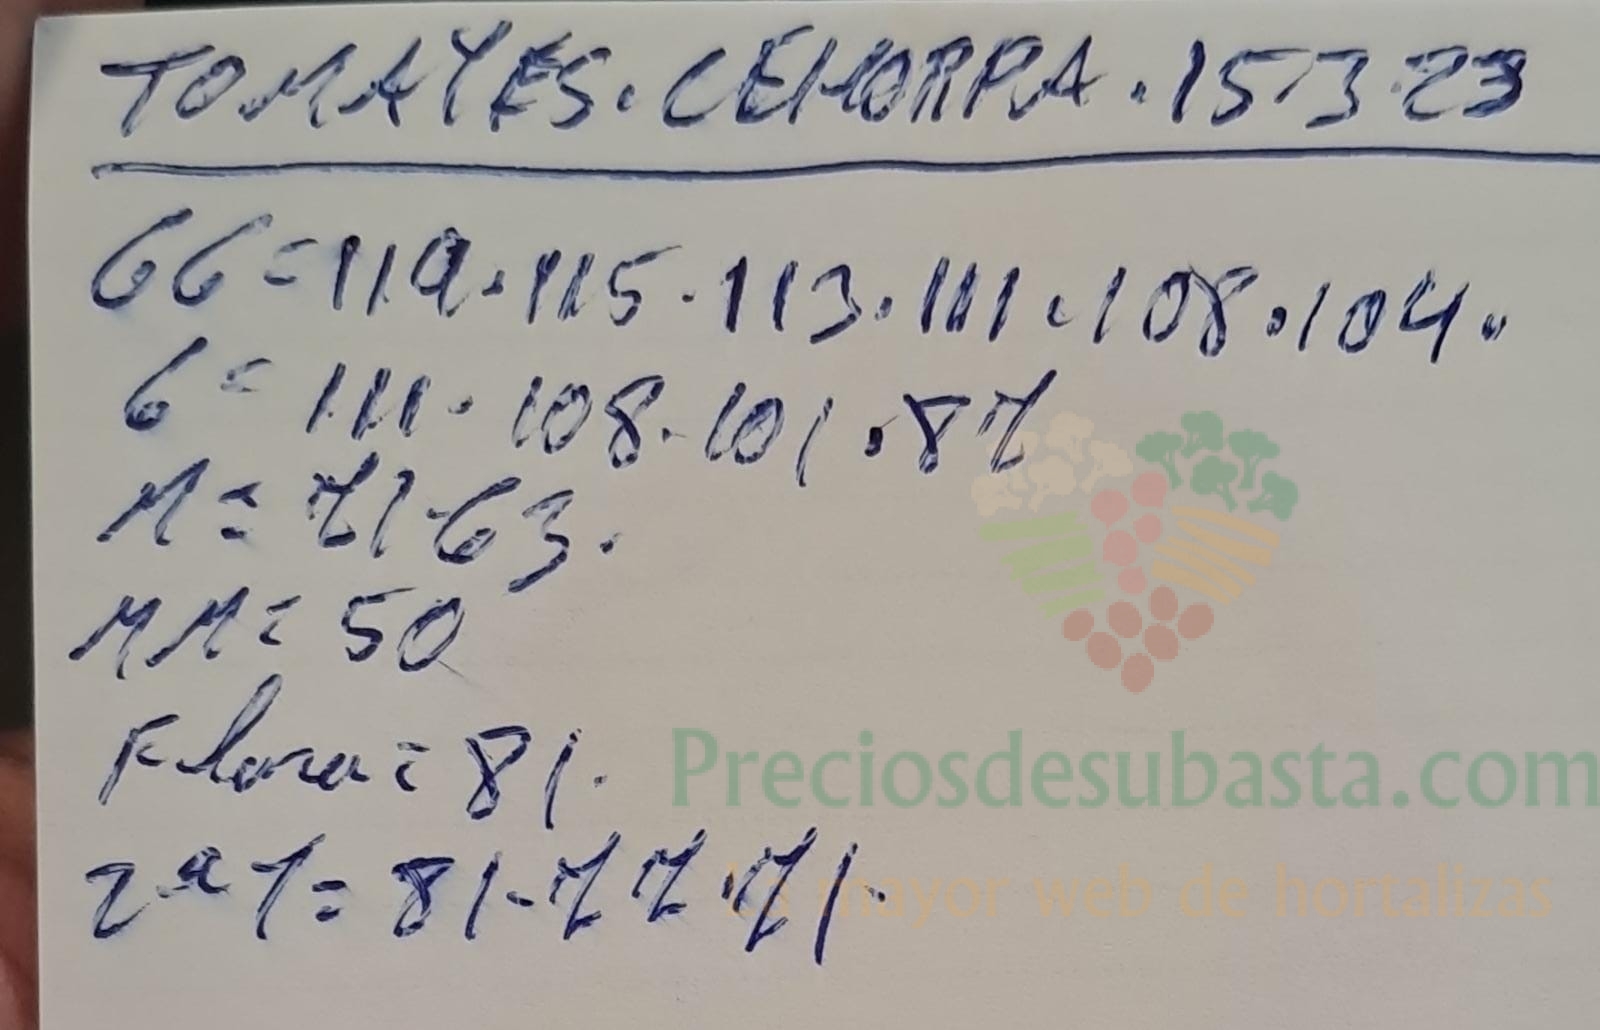 TOMAYES. CEHORPA. 15-3-23
GG = 119. 115. 113. 111. 108. 104.
G = 111. 108. 101. 87
M = 71-63.
MM = 50
Flora = 81.
2ª 7 = 81-77-71.
Preciosdesubasta.com
La mayor web de hortalizas